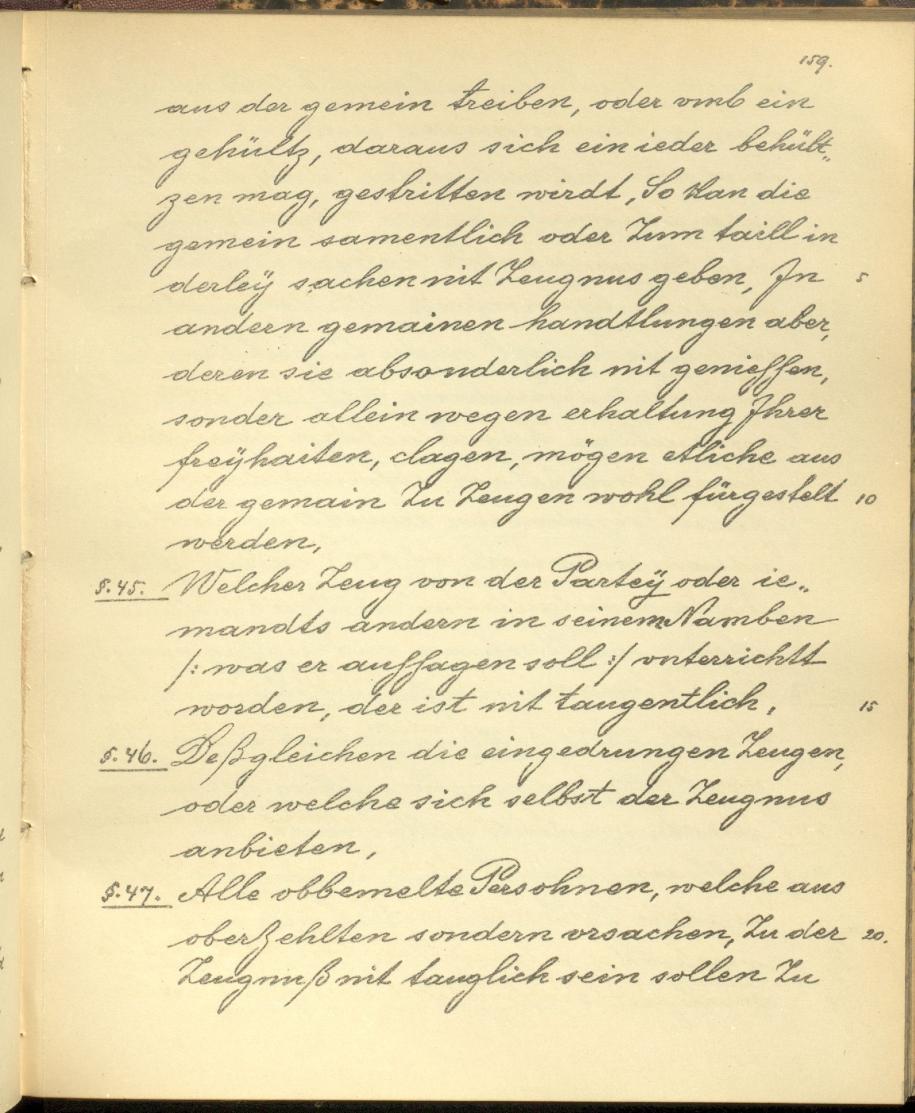 159.
aus der gemein treiben, oder vmb ein
gehültz, daraus sich ein ieder behült„
zen mag, gestritten wirdt, So kan die
gemein samentlich oder Zum taill in
derleÿ sachen nit Zeugnus geben, In 5
andern gemainen handtlungen aber,
deren sie absonderlich nit genieſſen,
sonder allein wegen erhaltung Ihrer
freÿhaiten, clagen, mögen etliche aus
der gemain Zu Zeugen wohl fürgestelt 10
werden,
§.45. Welcher Zeug von der Parteÿ oder ie„
mandts andern in seinem Namben
/: was er auſſagen soll :/ vnterrichtt
worden, der ist nit taugentlich, 15
§.46. Deßgleichen die eingedrungen Zeugen,
oder welche sich selbst der Zeugnus
anbieten,
§.47. Alle obbemelte Persohnen, welche aus
oberzehlten sondern vrsachen, Zu der 20.
Zeugnuß nit tauglich sein sollen Zu